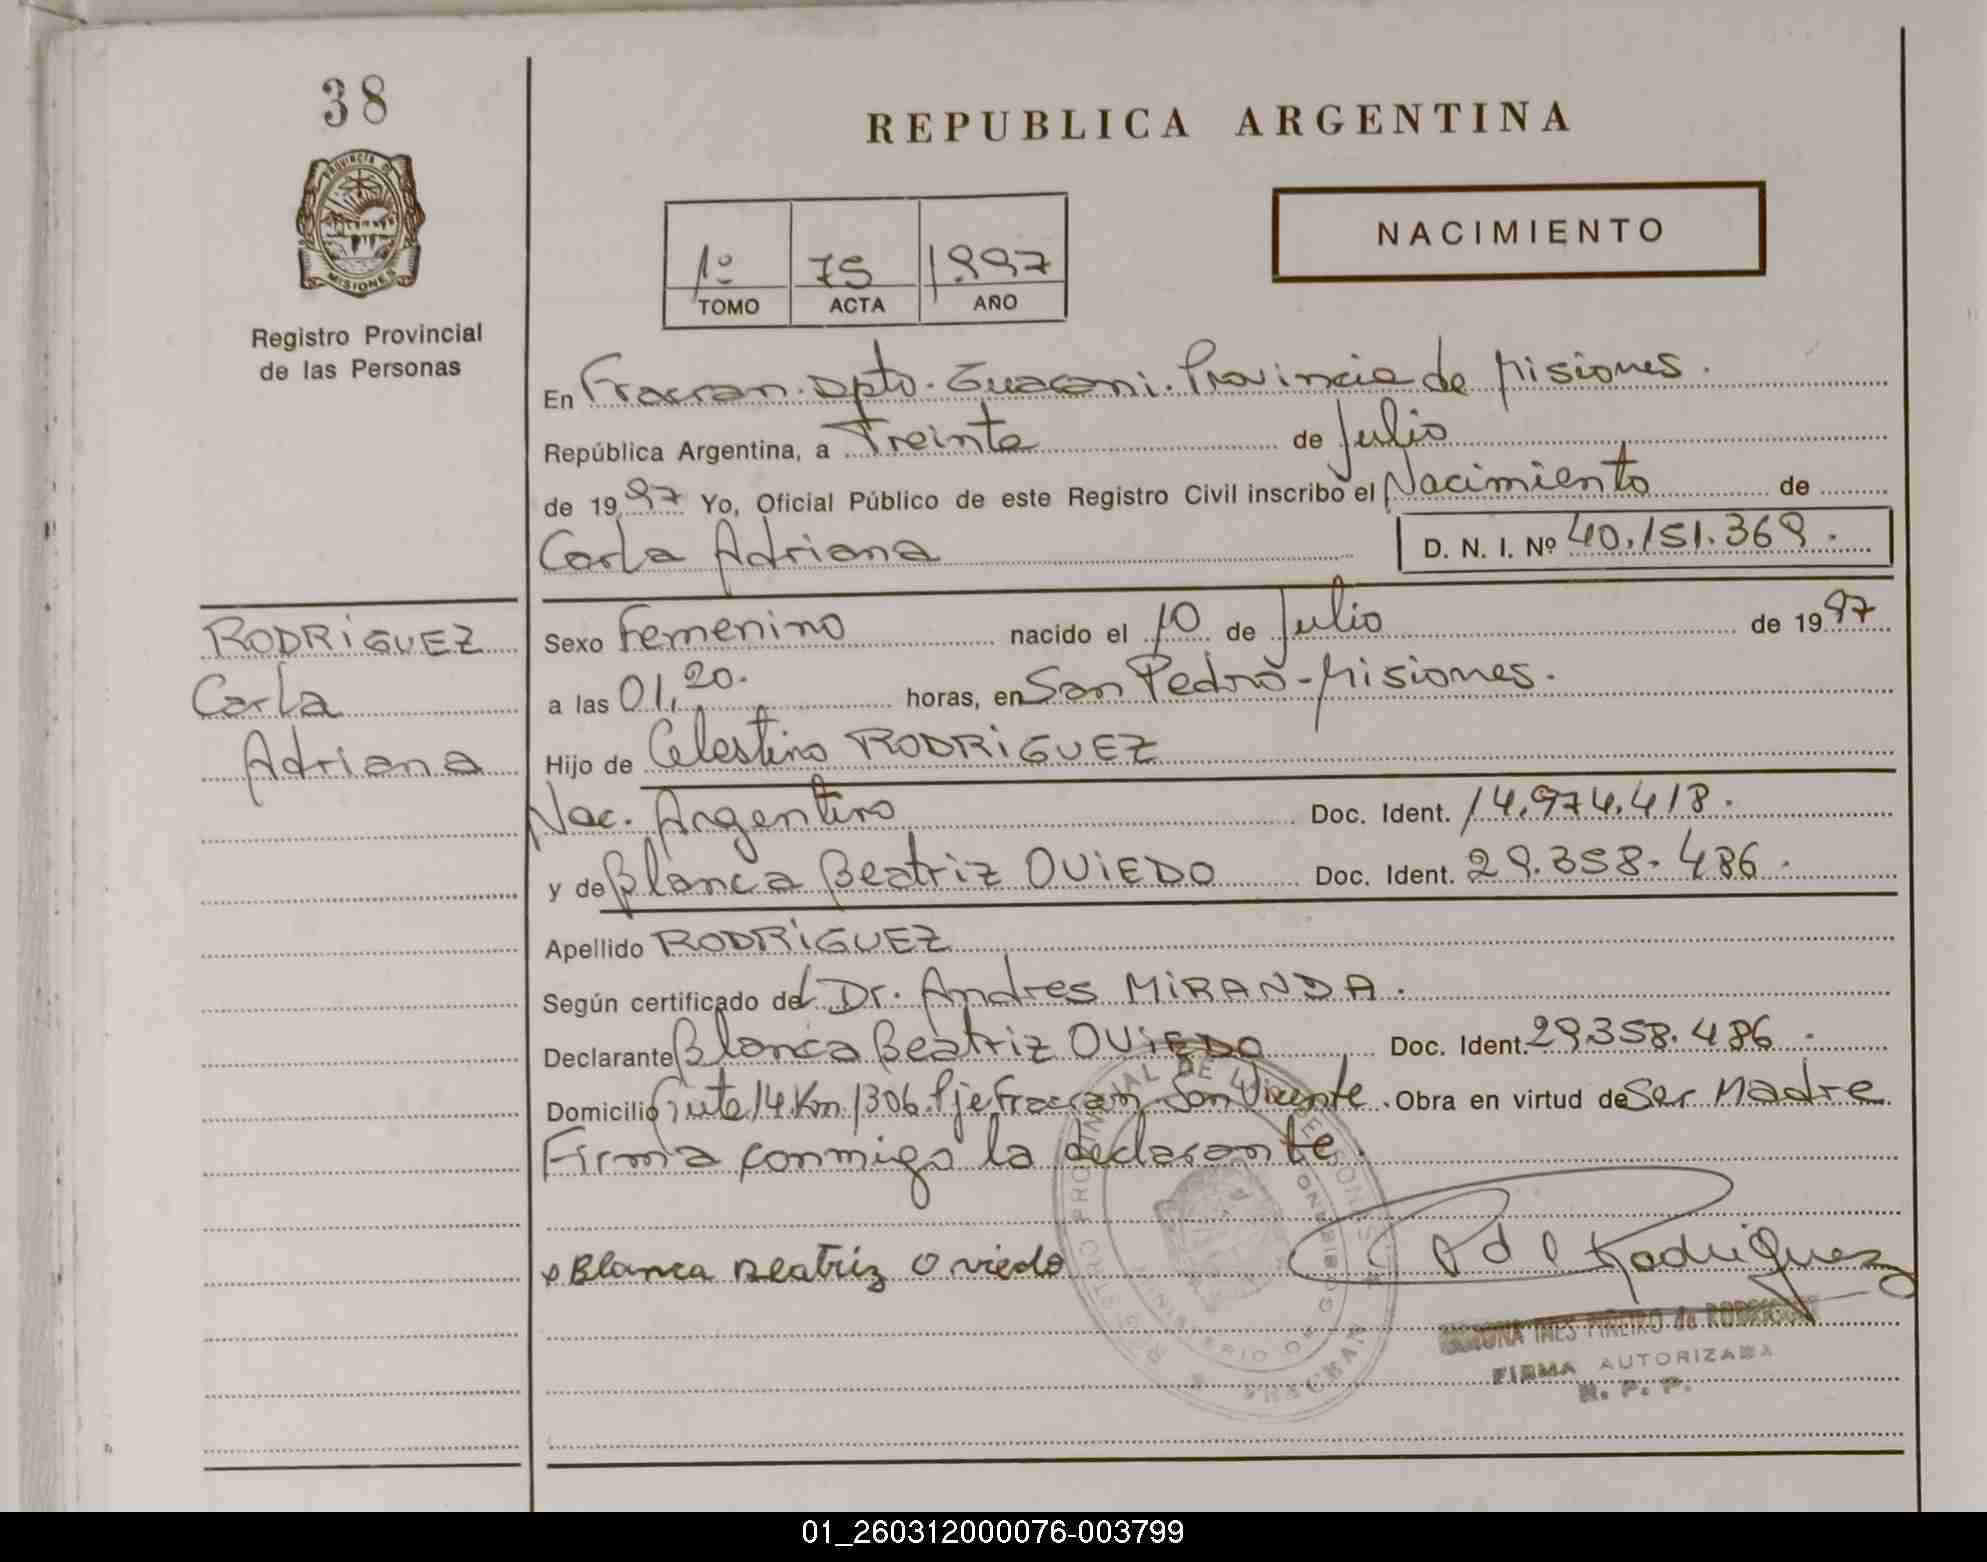 38
REPUBLICA ARGENTINA
PROVINCIA DE
MISIONES
Registro Provincial
de las Personas
1º 75 1.997
TOMO ACTA AÑO
NACIMIENTO
En Fracran. Dpto. Guarani. Provincia de Misiones.
República Argentina, a Treinta de Julio
de 1997 Yo, Oficial Público de este Registro Civil inscribo el Nacimiento de
Carla Adriana D. N. I. Nº 40.151.369.
RODRIGUEZ
Carla
Adriana
Sexo Femenino nacido el 10 de Julio de 1997
a las 01,20. horas, en San Pedro - Misiones.
Hijo de Celestino RODRIGUEZ
Nac. Argentino Doc. Ident. 14.974.418.
y de Blanca Beatriz OVIEDO Doc. Ident. 29.358.486.
Apellido RODRIGUEZ
Según certificado del Dr. Andres MIRANDA.
Declarante Blanca Beatriz OVIEDO Doc. Ident. 29.358.486.
Domicilio ruta 14 Km 1306. Pje Fracran San Vicente. Obra en virtud de Ser Madre
Firma conmigo la declarante.
Blanca Beatriz Oviedo
Rodriguez
REGISTRO PROVINCIAL DE LAS PERSONAS
MINISTERIO DE GOBIERNO
FRACRAN
INES PIÑEIRO de RODRIGUEZ
FIRMA AUTORIZADA
R. P. P.
01_260312000076-003799